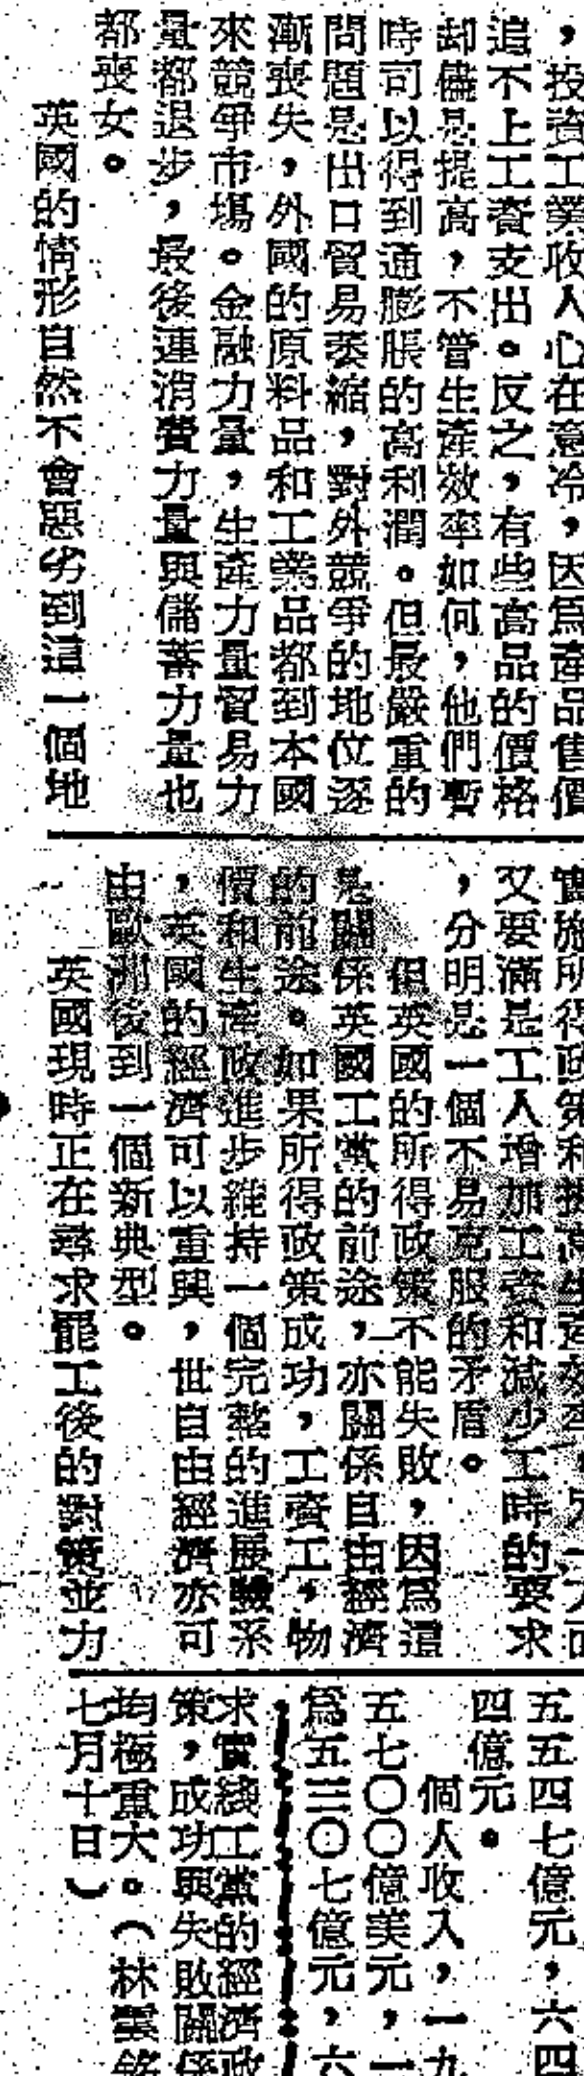 ，投資工業收人心在意冷，因爲產品售價
追不上工資支出。反之，有些商品的價格
却儘是提高，不管生產效率如何，他們暫
時司以得到通膨脹的高利潤。但最嚴重的
問題是出口貿易萎縮，對外競爭的地位逐
漸喪失，外國的原料品和工業品都到本國
來競爭市場。金融力量，生產力量貿易力
量都退步，最後連消費力量與儲蓄力量也
都喪女。
英國的情形自然不會惡劣到這一個地
實施所得政策和提高生產效率，另一方面
又要滿是工人增加工資和減少工時的要求
，分明是一個不易克服的矛盾。
但英國的所得政策不能失敗，因爲這
是關係英國工黨的前途，亦關係自由經濟
的前途。如果所得政策成功，工資工，物
價和生產改進步維持一個完整的進展驗系
，英國的經濟可以重興，世自由經濟亦可
由歐洲後到一個新典型。
英國現時正在尋求罷工後的對策並力
五五四七億元，六四
四億元。
個人收入，一九
五七〇〇億美元，一
爲五三〇七億元，六
求實綫工黨的經濟政
策，成功與失敗關係
均極重大。（林雲銘
七月十日）